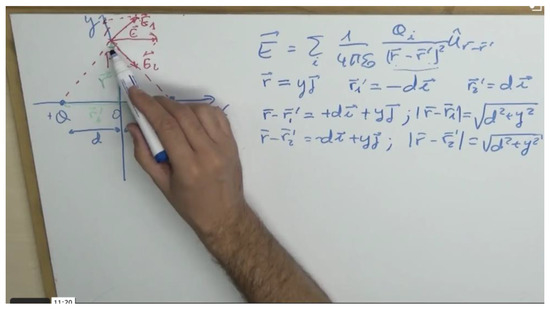 y
E⃗₁
E⃗
E⃗₂
+Q
O
d
E⃗ = Σᵢ 1/(4πε₀) Qᵢ/|r⃗ - r⃗ᵢ'|² û r-r'
r⃗ = yj⃗   r⃗₁' = -di⃗   r⃗₂' = di⃗
r⃗ - r⃗₁' = +di⃗ + yj⃗ ; |r⃗ - r⃗₁'| = √(d² + y²)
r⃗ - r⃗₂' = -di⃗ + yj⃗ ; |r⃗ - r⃗₂'| = √(d² + y²)
11:20